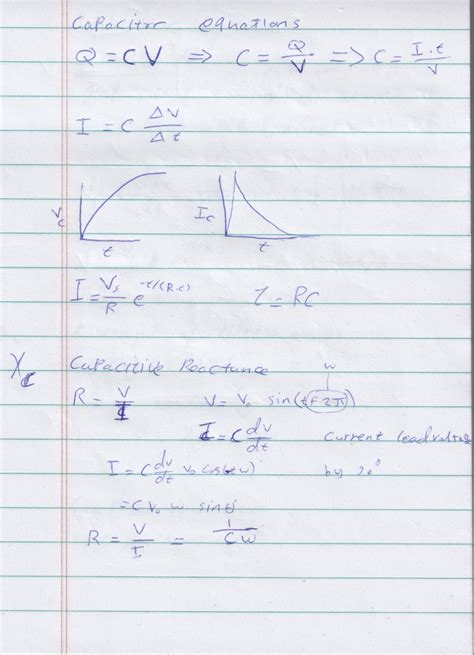 Capacitor equations
Q = CV ⇒ C = Q/V ⇒ C = I.t/V
I = C ΔV/Δt
Vc
t
Ic
t
I = Vs/R e^-t/(R.C) τ = RC
Xc Capacitive Reactance
w
R = V/I V = Vo sin(t f 2π)
I = C dv/dt current lead voltage
I = C dv/dt vo cos(tw) by 90°
= C Vo w sinθ
R = V/I = 1/Cw